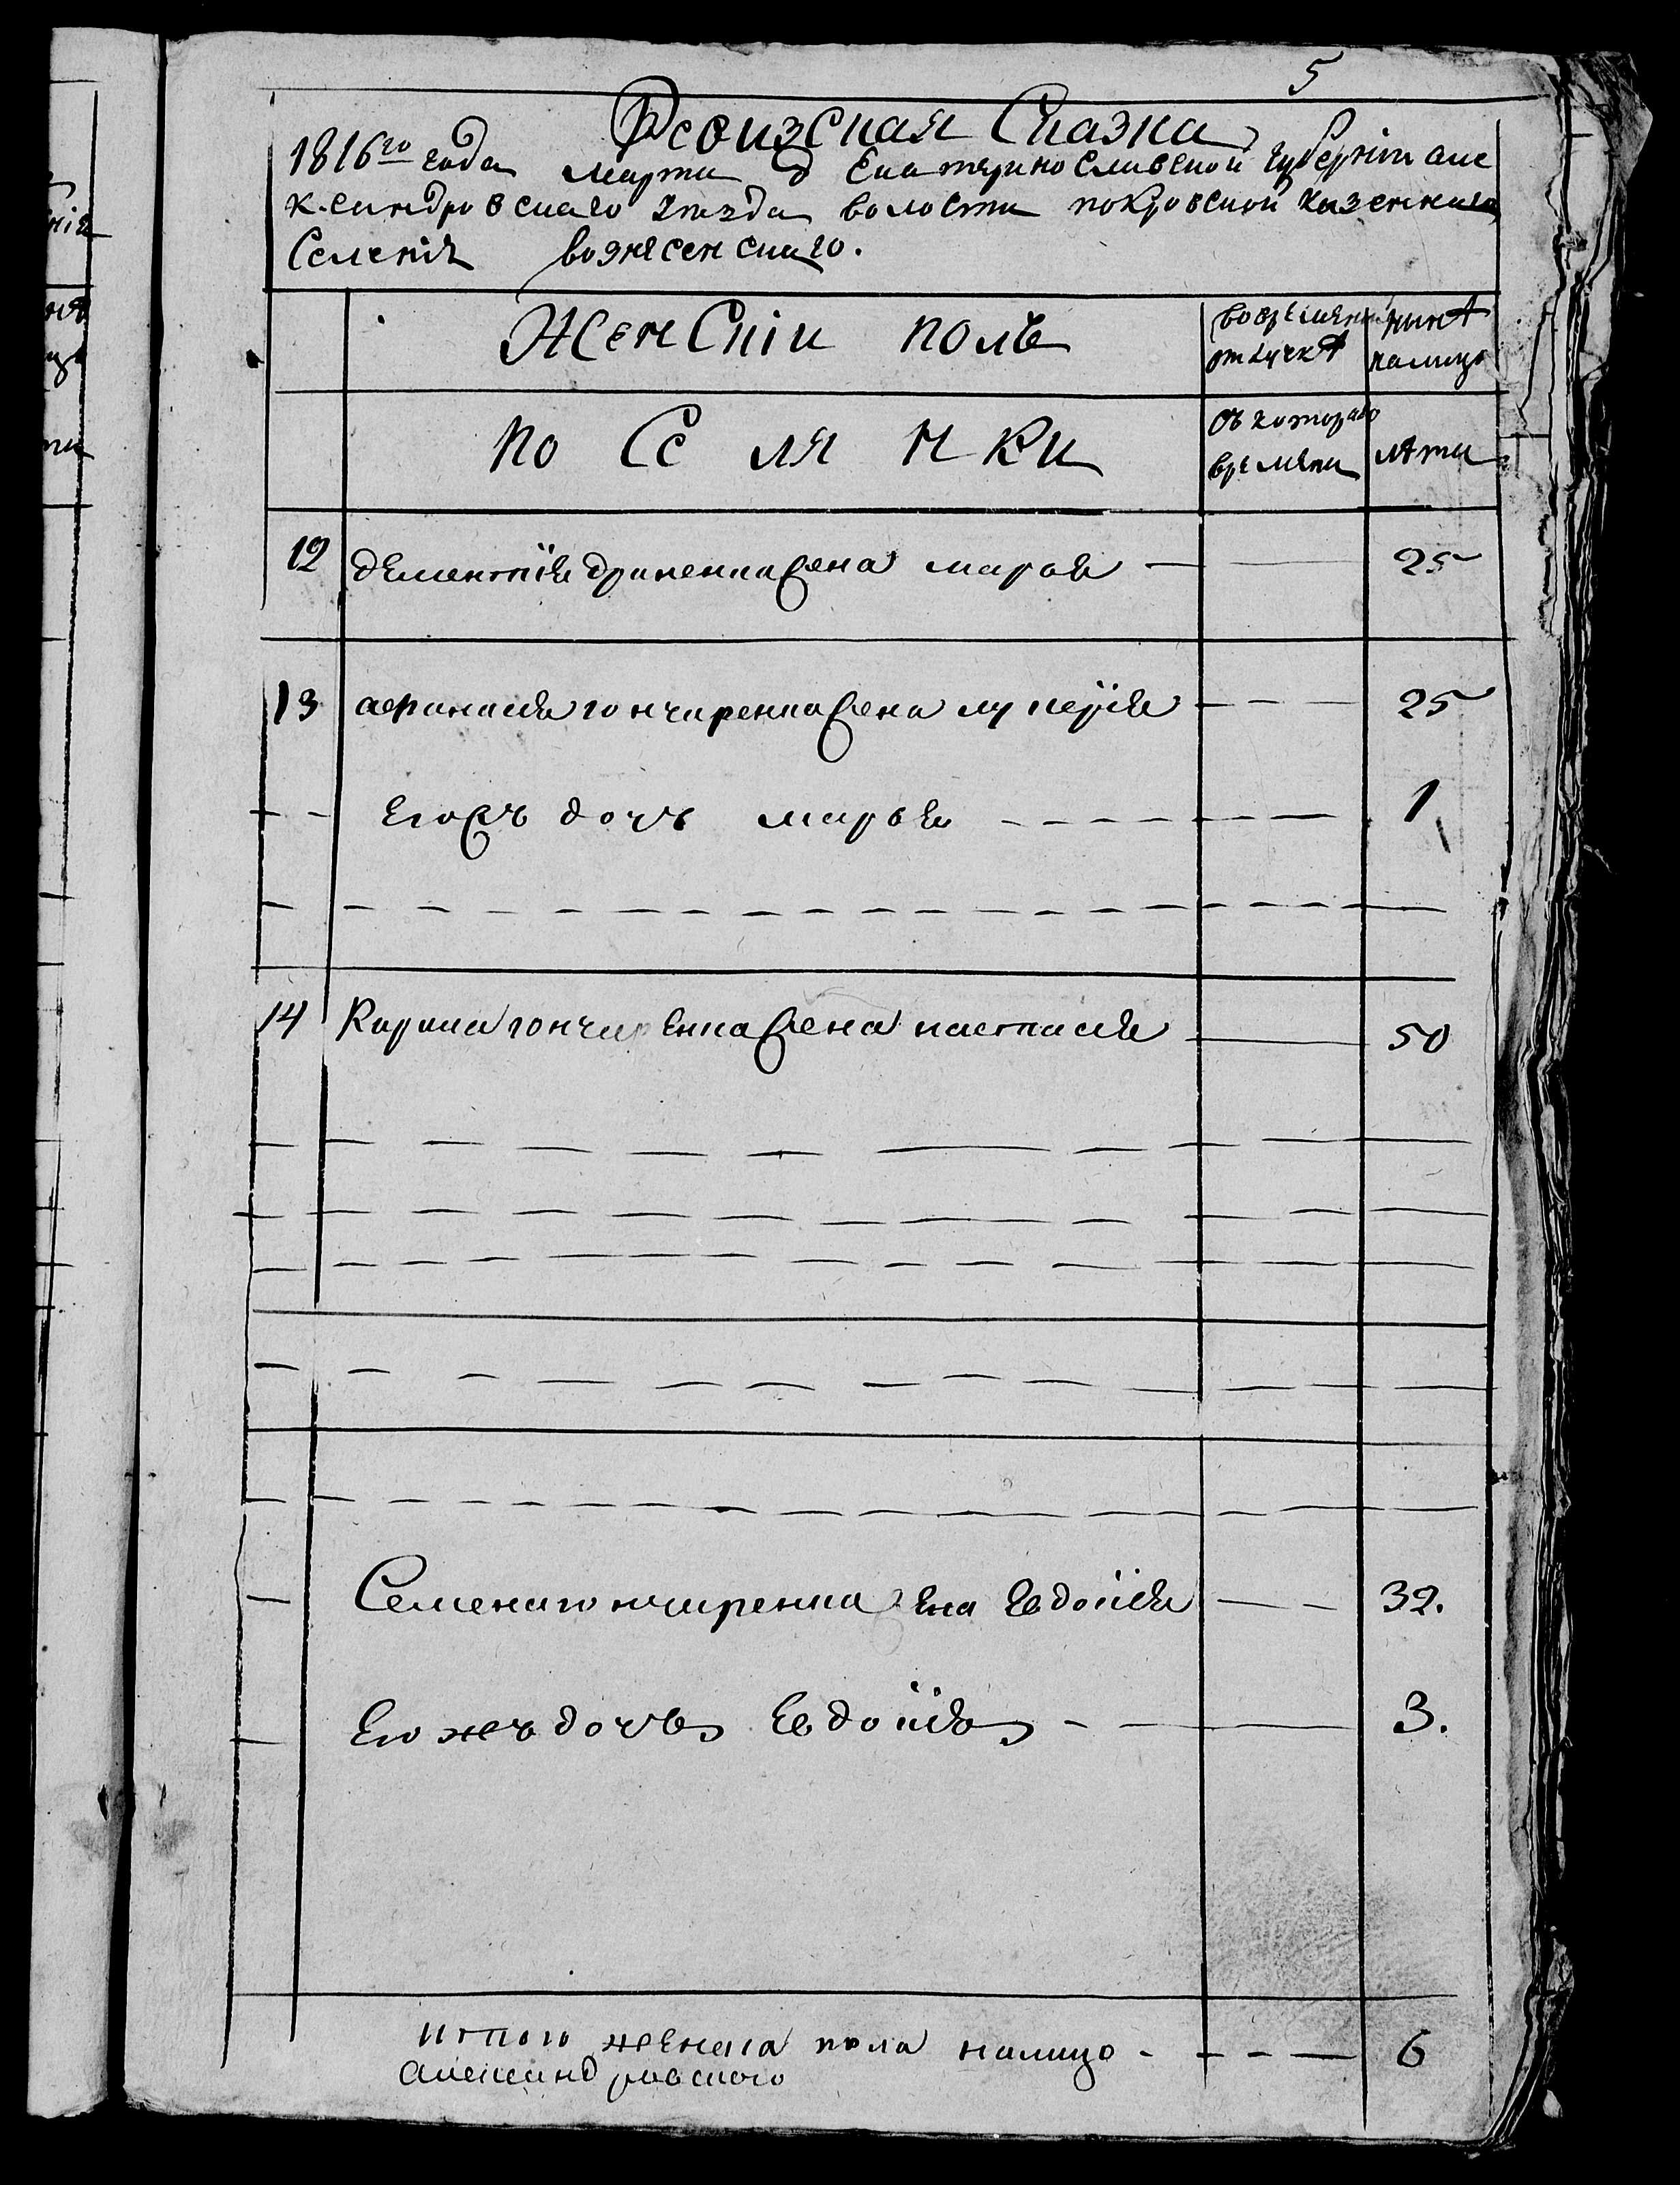 5
Ревизская Сказка
1816го года марта д Екатеринославской губерніи але
ксандровскаго уезда волости покровской казеннаго
Селенія вознесенскаго.
Женскіи полъ
вовремянной
отлучкѣ
нынѣ
налицо
Поселянки
съ котораго
времяни
лѣта
12 дементія драненка жена маря 25
13 афанасия гончаренка жена лукерія 25
его жъ дочъ маръя 1
14 Карпа гончаренка жена настасия 50
Семена гончаренка жена Евдокія 32.
Его жъ дочъ Евдокія 3.
итого женска пола налицо 6
александровского